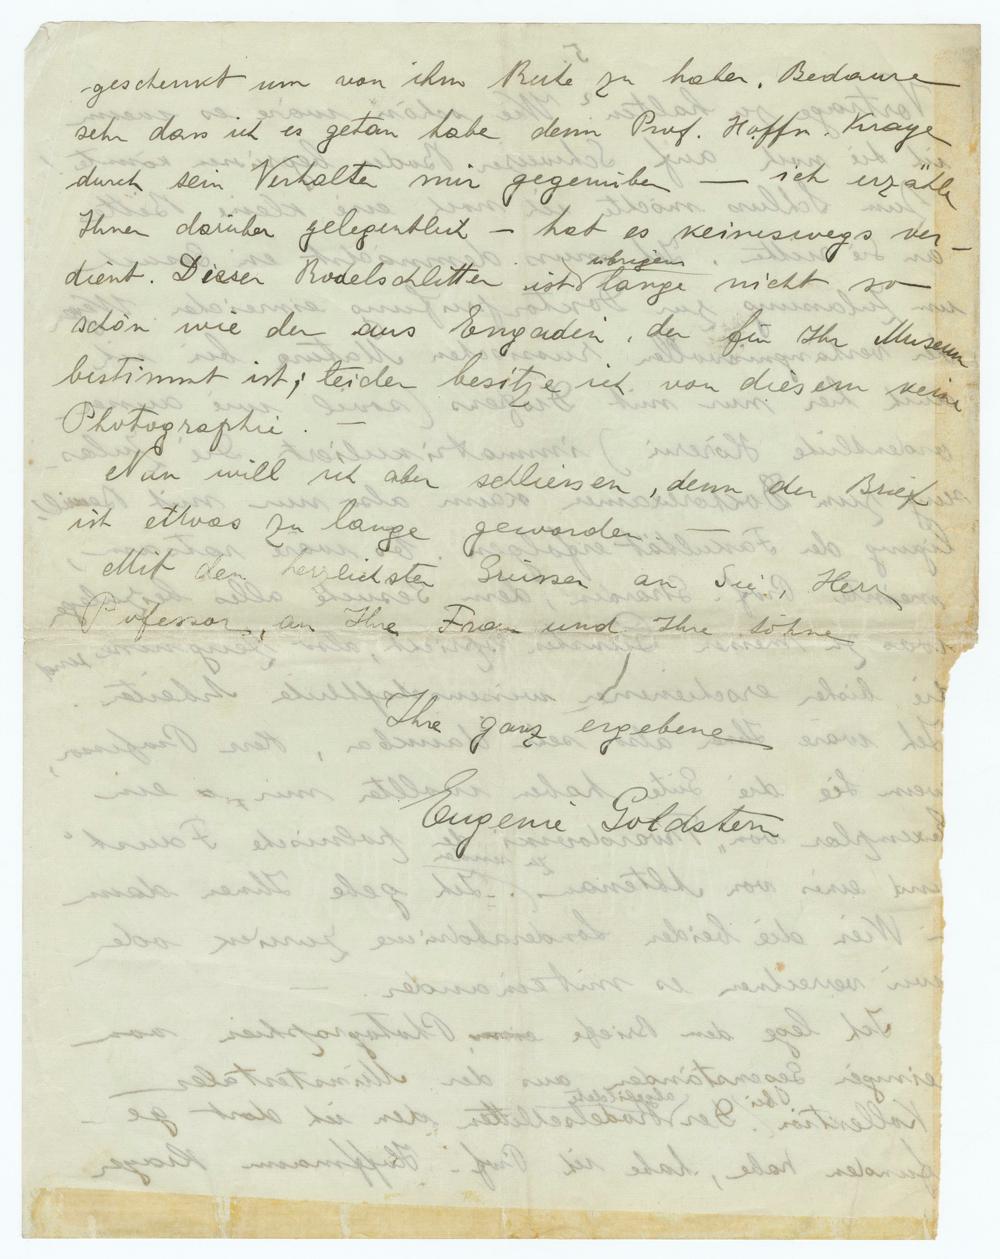 geschenkt um von ihm Ruhe zu haben. Bedaure
sehr dass ich es getan habe denn Prof. Hoffm. Kraye
durch sein Verhalten mir gegenüber — ich erzähle
Ihnen darüber gelegentlich – hat es keineswegs ver-
dient. Dieser Rodelschlitten ist übrigens lange nicht so
schön wie der aus Engadin, der für Ihr Museum
bestimmt ist; leider besitze ich von diesem keine
Photographie. —
Nun will ich aber schliessen, denn der Brief
ist etwas zu lange geworden —
Mit den herzlichsten Grüssen an Sie, Herr
Professor, an Ihre Frau und Ihre Söhne
Ihre ganz ergebene
Eugenie Goldstern